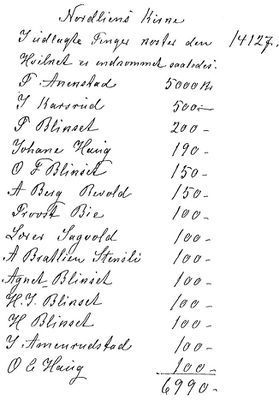 Nordliens Kirke
I udlagte Penger koster den 14127.
Hvilket er indkommet saaledes.
P Anenstad 5000 Kr
I Karsrud 500 -
P Blinset 200 -
Johane Haug 190 -
O P Blinset 150 -
A Berg Revold 150 -
Provst Bie 100 -
Lærer Sagvold 100 -
A Bratlien Stenslie 100 -
Agnet Blinset 100 -
H. I. Blinset 100 -
H Blinset 100 -
I Amenrudstad 100 -
O C Haug 100 -
6990 -